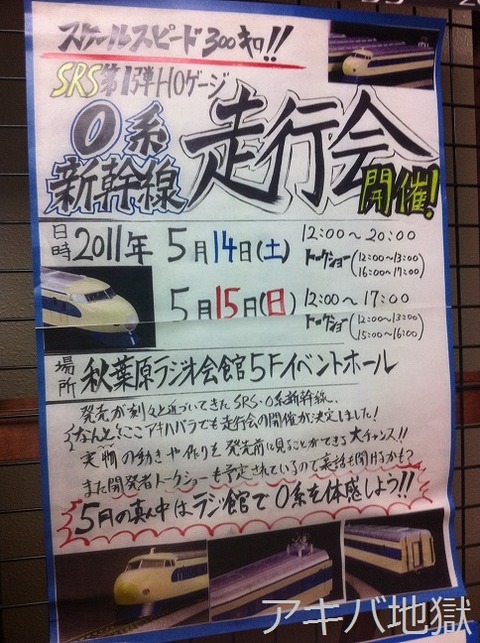 スケールスピード300キロ!!
SRS第1弾HOゲージ
0系
新幹線
走行会
開催!
日時 2011年 5月14日(土) 12:00〜20:00
トークショー(12:00〜13:00 16:00〜17:00)
5月15日(日) 12:00〜17:00
トークショー(12:00〜13:00 15:00〜16:00)
場所 秋葉原ラジオ会館5Fイベントホール
発売が刻々と近づいてきたSRS・0系新幹線、
なんと!ここアキハバラでも走行会の開催が決定しました!
実物の動きや作りを発売前に見ることができる大チャンス!!
また開発者トークショーも予定されているので裏話も聞けるかも?
5月の真ん中はラジ館で0系を体感しよう!!
アキバ地獄